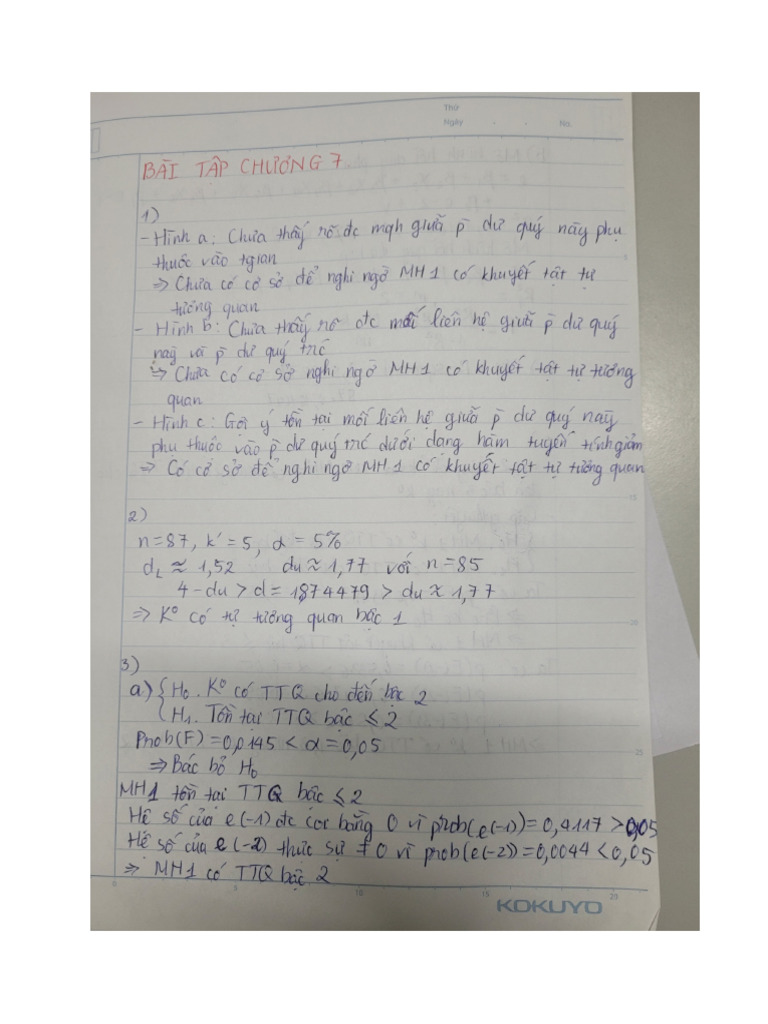 Thứ
Ngày . . No.
BÀI TẬP CHƯƠNG 7
1)
- Hình a: Chưa thấy rõ đc mqh giữa p̄ dư quý này phụ
thuộc vào tgian
⇒ Chưa có cơ sở để nghi ngờ MH1 có khuyết tật tự
tương quan
- Hình b: Chưa thấy rõ đtc mối liên hệ giữa p̄ dư quý
này và p̄ dư quý trc
⇒ Chưa có cơ sở nghi ngờ MH1 có khuyết tật tự tương
quan
- Hình c: Gợi ý tồn tại mối liên hệ giữa p̄ dư quý này
phụ thuộc vào p̄ dư quý trc dưới dạng hàm tuyến tính giảm
⇒ Có cơ sở để nghi ngờ MH1 có khuyết tật tự tương quan
2)
n=87, k'=5, α = 5%
dL ≈ 1,52 du ≈ 1,77 với n=85
4-du > d = 1,874479 > du ≈ 1,77
⇒ K⁰ có tự tương quan bậc 1
3)
a) { H₀. K⁰ có TTQ cho đến bậc 2
{ H₁. Tồn tại TTQ bậc ≤ 2
Prob(F) = 0,0145 < α = 0,05
⇒ Bác bỏ H₀
MH1 tồn tại TTQ bậc ≤ 2
Hệ số của e(-1) đc coi bằng 0 vì prob(e(-1)) = 0,4117 > 0,05
Hệ số của e(-2) thực sự ≠ 0 vì prob(e(-2)) = 0,0044 < 0,05
⇒ MH1 có TTQ bậc 2
0 5 10 15 20
KOKUYO